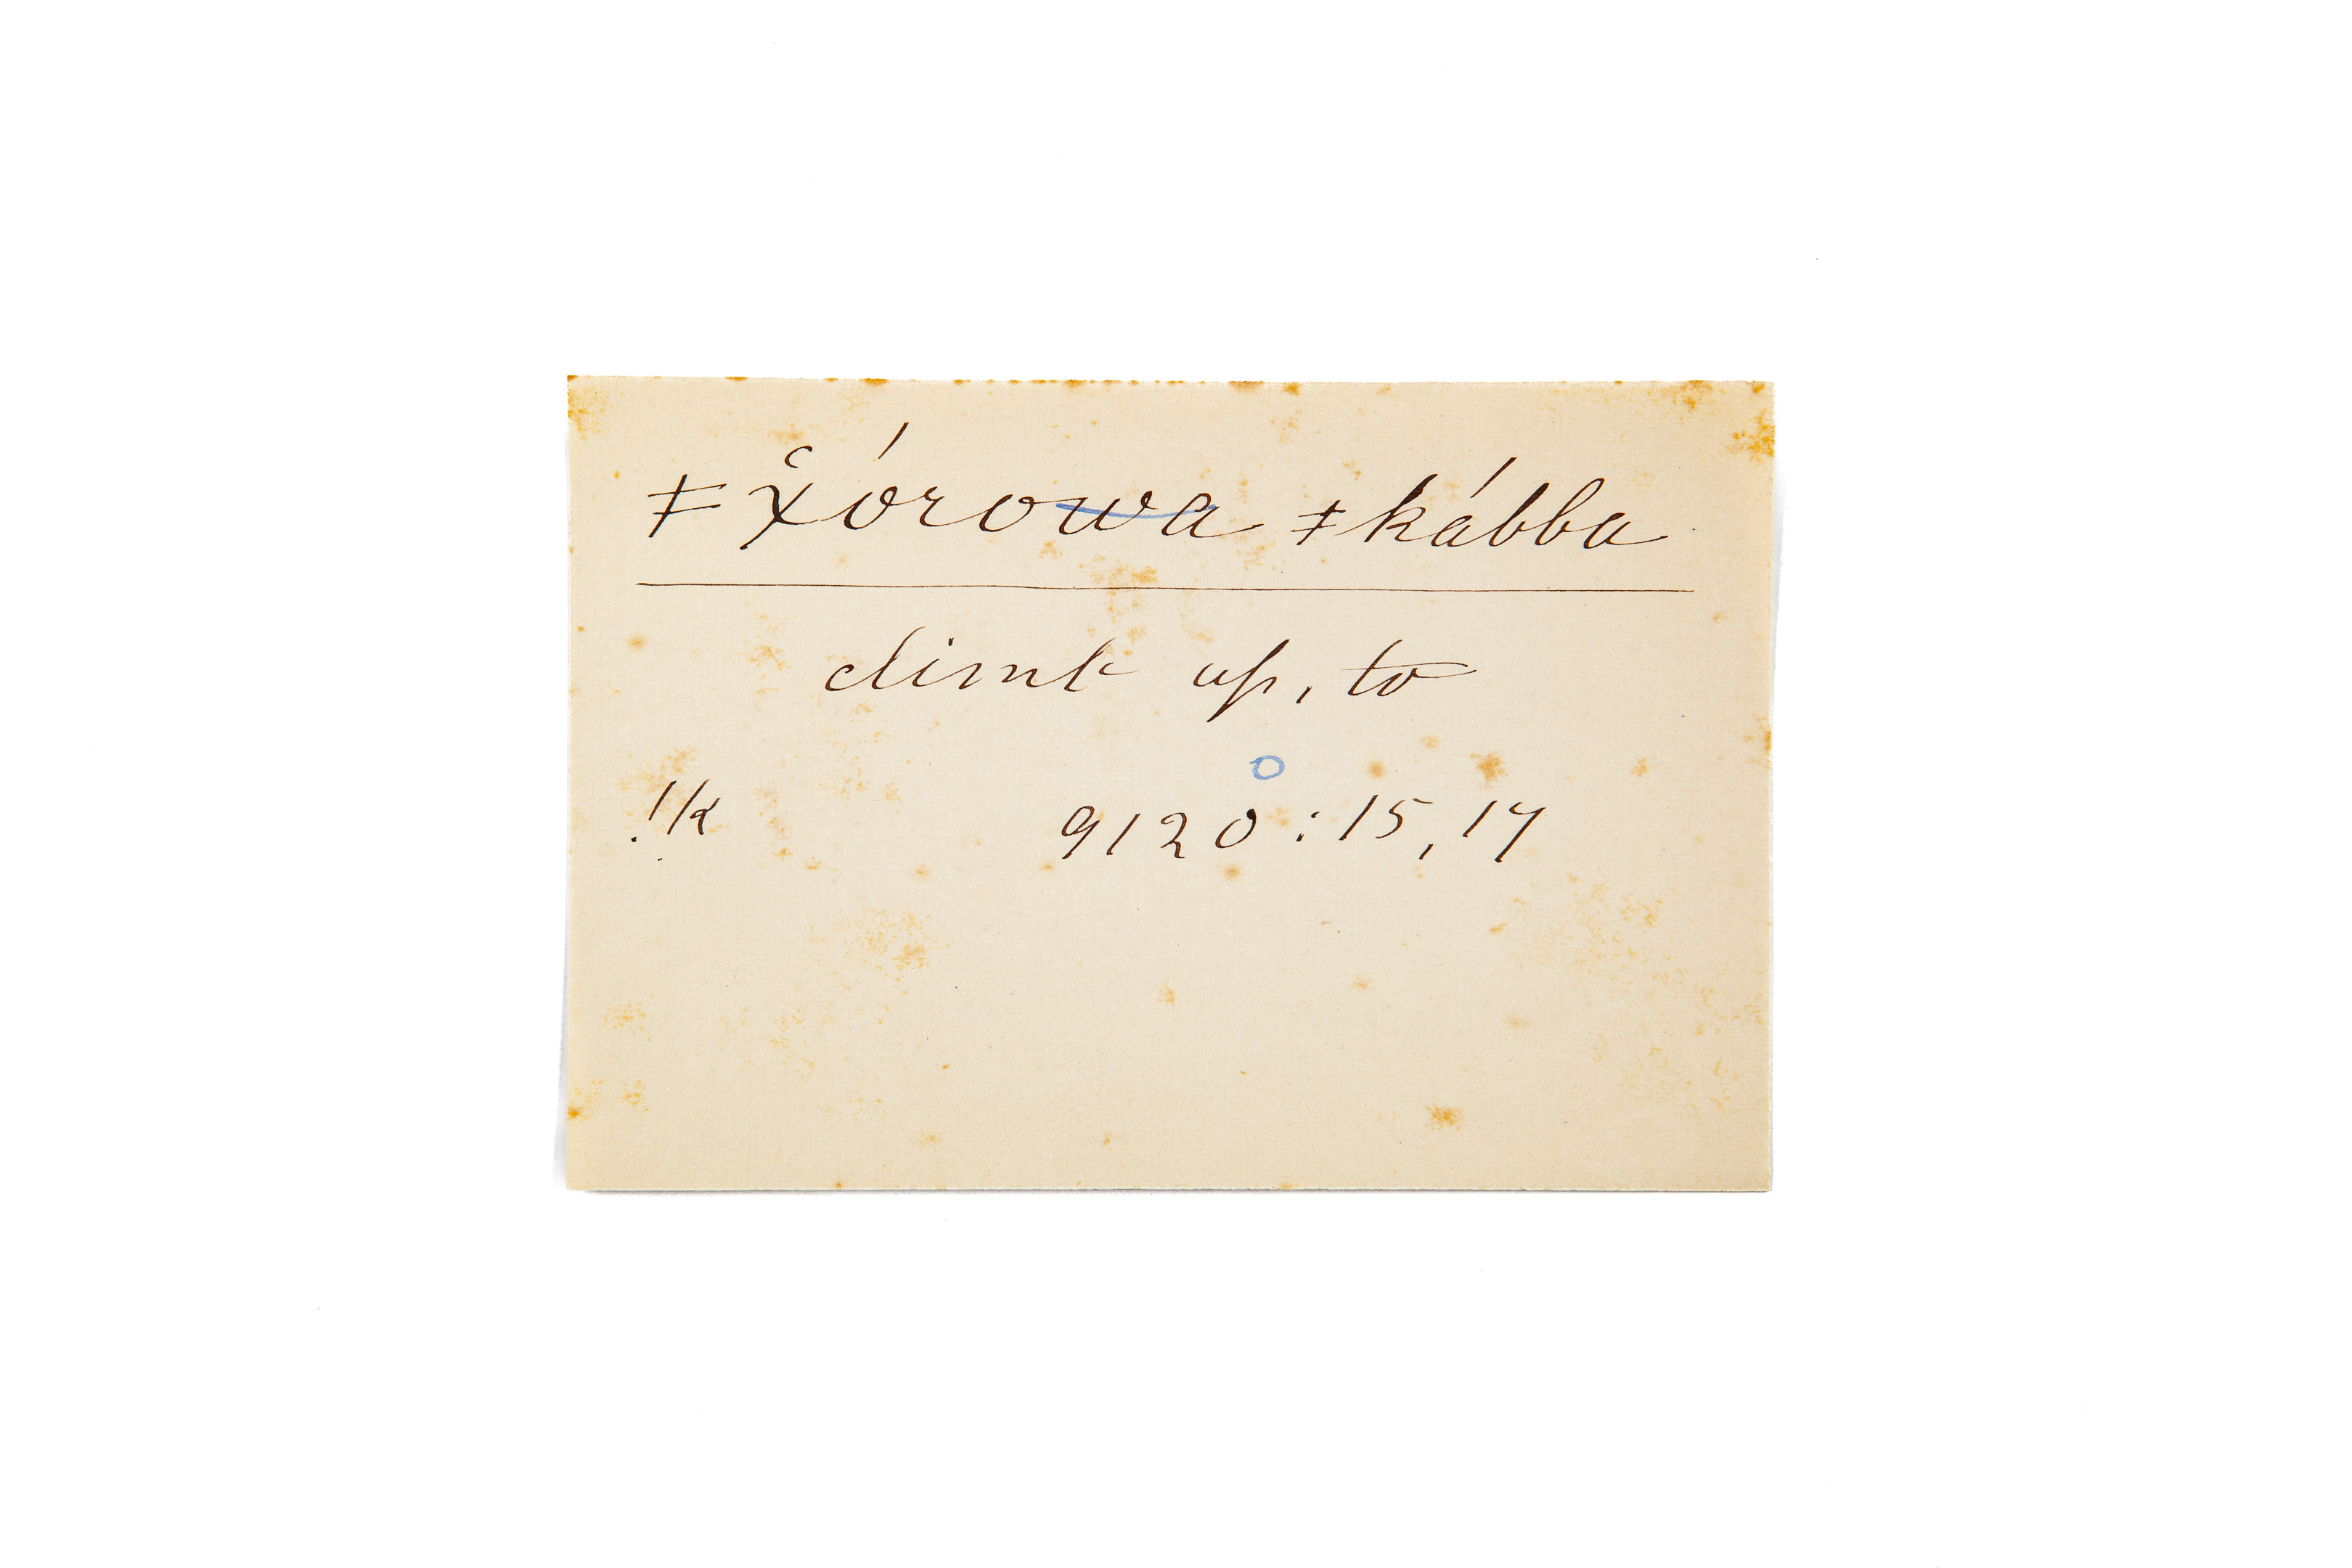 ǂx̔órowa ǂkábba
climb up, to
!k 9120 : 15, 17